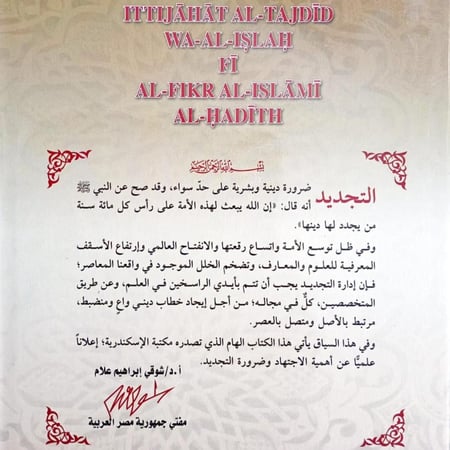 ITTIJĀHĀT AL-TAJDĪD
WA-AL-IṢLAḤ
FĪ
AL-FIKR AL-ISLĀMĪ
AL-ḤADĪTH
بسم الله الرحمن الرحيم
التجديد ضرورة دينية وبشرية على حدّ سواء، وقد صح عن النبي ﷺ
أنه قال: «إن الله يبعث لهذه الأمة على رأس كل مائة سنة
من يجدد لها دينها».
وفي ظل توسع الأمة واتساع رقعتها والانفتاح العالمي وإرتفاع الأسقف
المعرفية للعلوم والمعارف، وتضخم الخلل الموجود في واقعنا المعاصر؛
فإن إدارة التجديد يجب أن تتم بأيدي الراسخين في العلم، وعن طريق
المتخصصين، كلٌّ في مجاله؛ من أجل إيجاد خطاب ديني واعٍ ومنضبط،
مرتبط بالأصل ومتصل بالعصر.
وفي هذا السياق يأتي هذا الكتاب الهام الذي تصدره مكتبة الإسكندرية؛ إعلاناً
علميًّا عن أهمية الاجتهاد وضرورة التجديد.
أ.د/شوقي إبراهيم علام
مفتي جمهورية مصر العربية